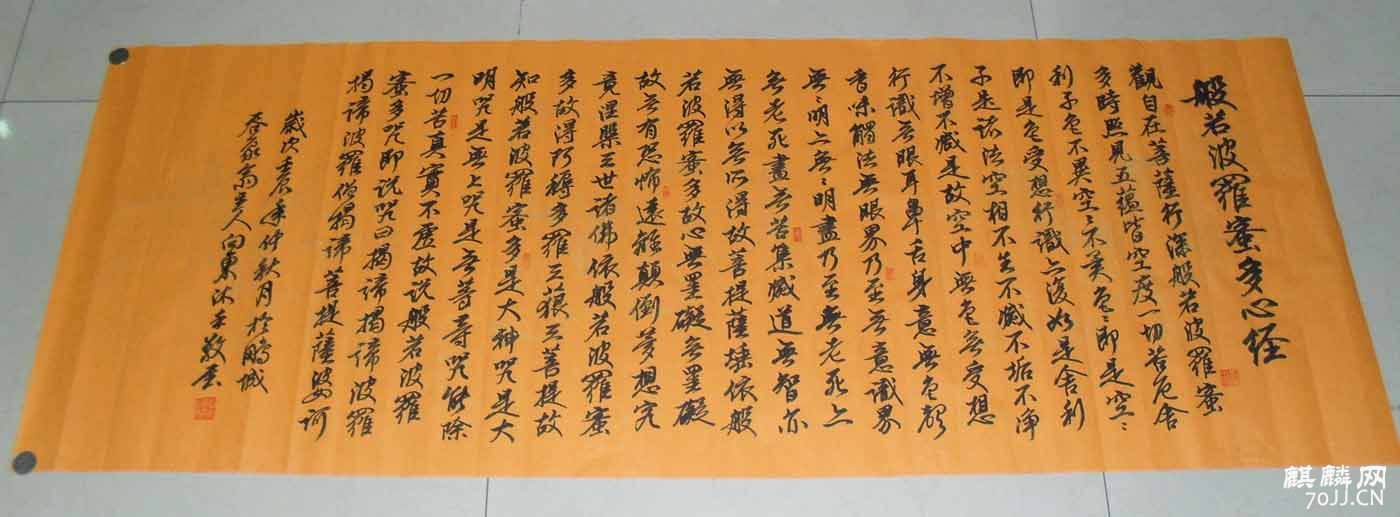 般若波羅蜜多心经
觀自在菩薩行深般若波羅蜜
多時照見五蘊皆空度一切苦厄舍
利子色不異空々不異色々即是空々
即是色受想行識亦復如是舍利
子是諸法空相不生不滅不垢不淨
不增不減是故空中無色無受想
行識無眼耳鼻舌身意無色聲
香味觸法無眼界乃至無意識界
無々明亦無々明盡乃至無老死亦
無老死盡無苦集滅道無智亦
無得以無所得故菩提薩埵依般
若波羅蜜多故心無罣礙無罣礙
故無有恐怖遠離顛倒夢想究
竟涅槃三世諸佛依般若波羅蜜
多故得阿耨多羅三藐三菩提故
知般若波羅蜜多是大神咒是大
明咒是無上咒是無等等咒能除
一切苦真實不虛故說般若波羅
蜜多咒即說咒曰揭諦揭諦波羅
揭諦波羅僧揭諦菩提薩婆訶
歲次壬辰年仲秋月於鵬城
主人向東沐手敬書
麒麟网
70JJ.CN